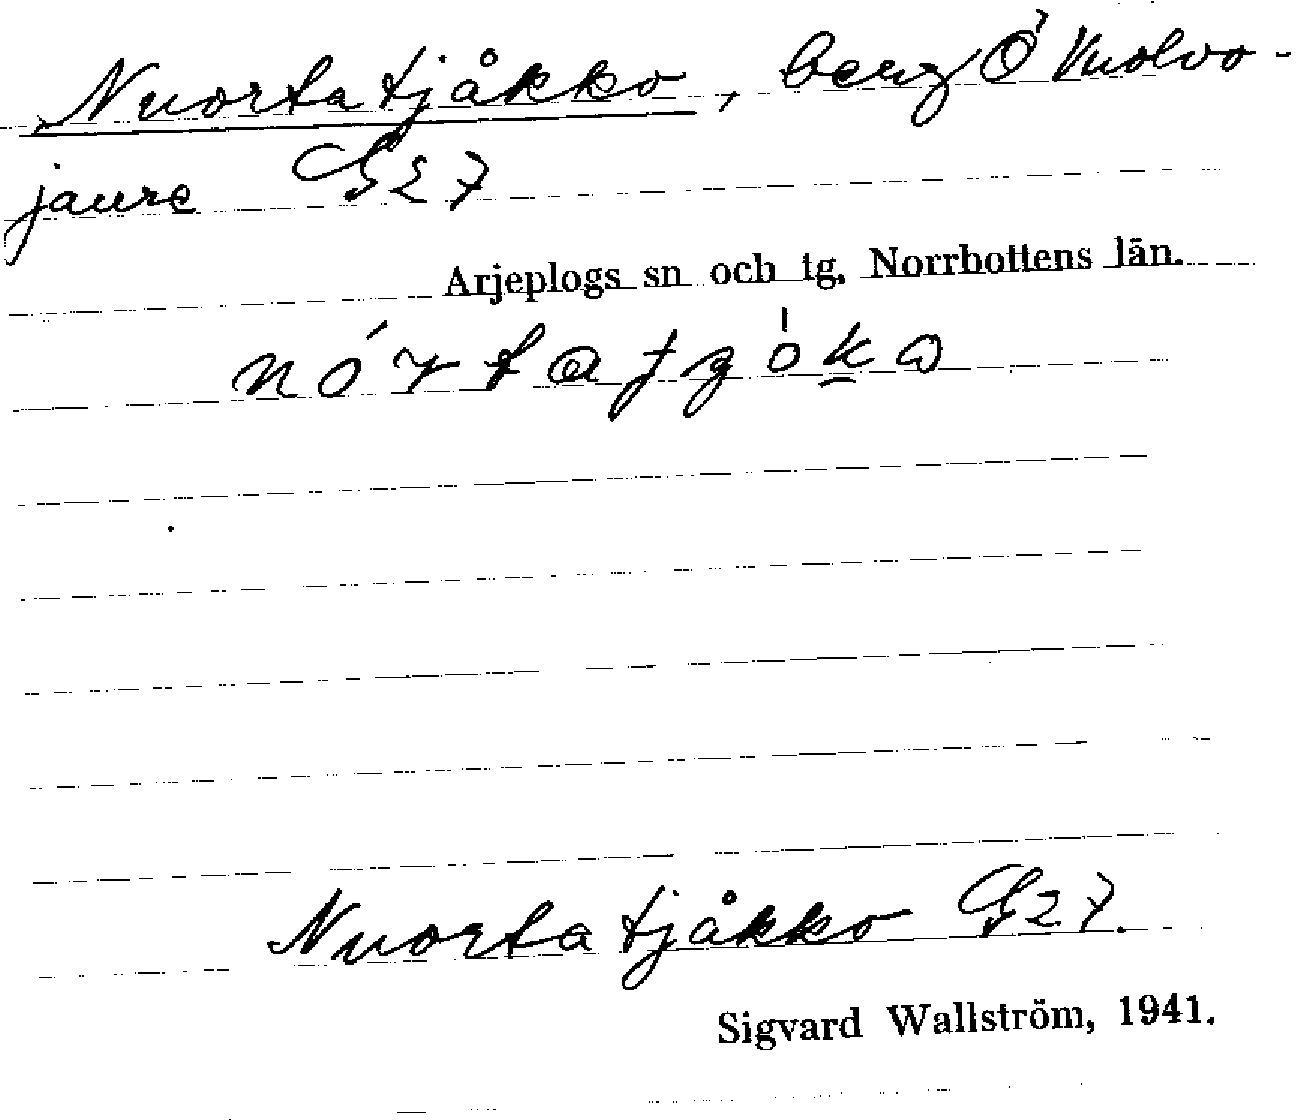 Nuortatjåkko, berg Ö Molvo-
jaure G27
Arjeplogs sn och tg, Norrbottens län.
Nuortatjåkko G27.
Sigvard Wallström, 1941.